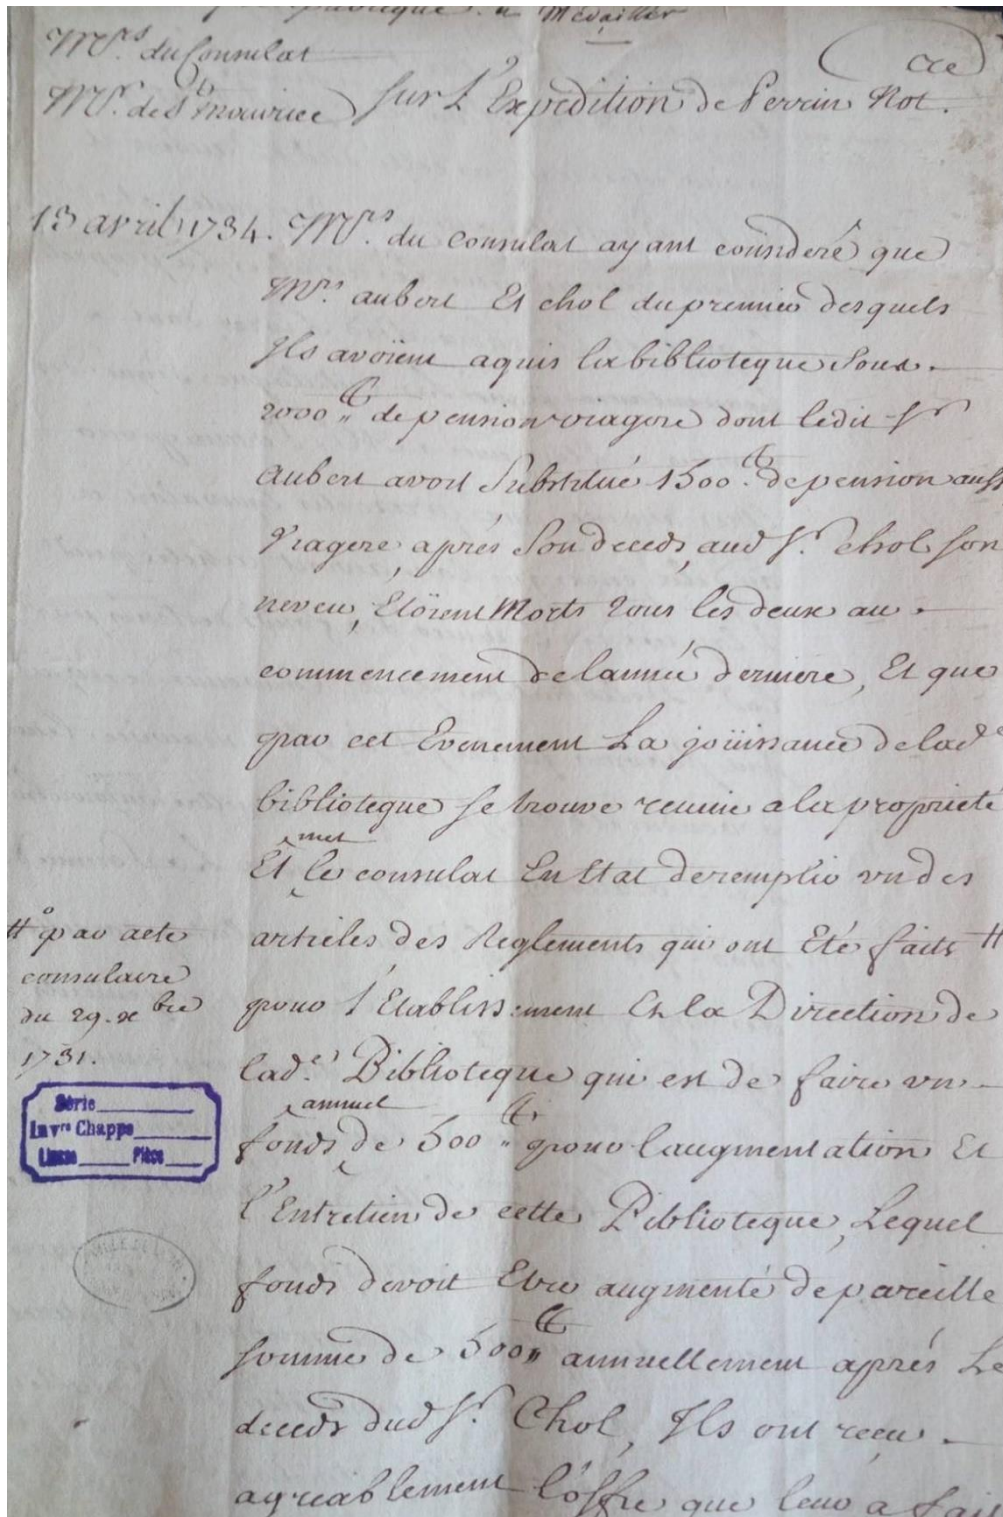 publique. a Medailler
Mrs. du Consulat
Mr. de St maurice
cre
sur L'Expedition de Perrin Not.
13 avril 1734. Mrs. du Consulat ayant consideré que
Mrs. aubert Et chol du premier desquels
Ils avoient aquis la biblioteque sous
2000 ₶ de pension viagere dont ledit Sr
Aubert avoit Substitué 1500 ₶ de pension auss
viagere, aprés son deceds, aud Sr. chol son
neveu, Etoïent Morts tous les deux au
commencement de lanneé derniere, Et que
par cet Evenement La joüissance de lade
biblioteque se trouve reunie a la proprieté
Et met le consulat En Etat de remplir un des
articles des Reglements qui ont Eté faits #
# par acte
consulaire
du 29. xbre
1731.
pour l'Etablissement Et la Direction de
lade. Biblioteque qui est de faire un
fonds annuel de 500 ₶ pour laugmentation Et
l'Entretien de cette Biblioteque, Lequel
fonds devoit Etre augmenté de pareille
somme de 500 ₶ annuellement aprés Le
deceds dud Sr. Chol, Ils ont reçu
agreablement l'offre que leur a fait
Série
Invre Chappe
Liasse Pièce
VILLE DE LYON